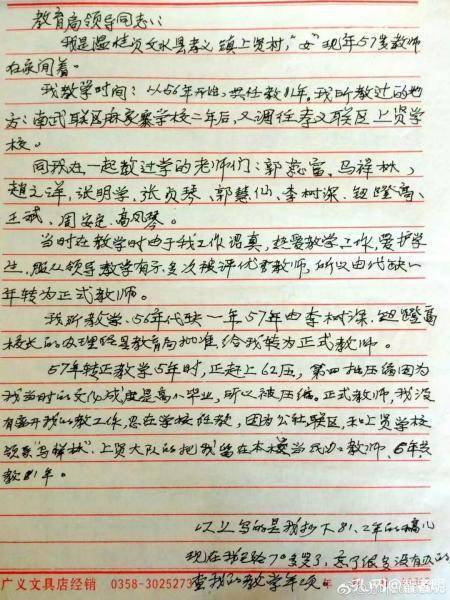 教育局领导同志:
我是温桂贞文水县孝义镇上贤村,"女"现年57岁教师
在家闲着。
我教学时间:以56年开始,共任教11年。我所教过的地
方:南武联区麻家寨学校二年后,又调任孝义联区上贤学
校。
同我在一起教过学的老师们:郭慈富,马祥林,
赵元祥,张明学,张贞琴、郭慧仙、李树深、钮登高、
王斌、周安定、高凤琴。
当时在教学时由于我工作认真,热爱教学工作,爱护学
生,服从领导教学有方,多次被评优秀教师,所以由代缺一
年转为正式教师。
我所教学、56年代缺一年,57年由李树深、钮登高
校长的办理经县教育局批准,给我转为正式教师。
57年转正教学5年时,正赶上62压,第四批压缩因为
我当时的文化成度是高小毕业,所以被压缩。正式教师,我没
有离开我的教工作,忽在学校任教,因为公社联区,和上贤学校
领导"马祥林"、上贤大队的把我留在本校当民办教师,6年共
教11年。
以上写的是我抄下81、2年的稿儿
现在我已经70多岁了,
查我的教学年项。
广义文具店经销 0358-3025273
年 月 日